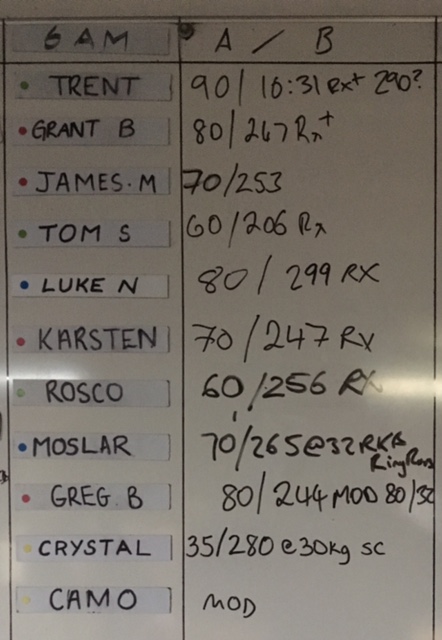 6 AM A / B
TRENT 90 / 16:31 Rx+ 290?
GRANT B 80 / 247 Rx+
JAMES. M 70/253
TOM S 60/206 Rx
LUKE N 80 / 299 RX
KARSTEN 70 / 247 RX
ROSCO 60 / 256 RX
MOSLAR 70/265@32RKB
Ring Rows
GREG. B 80/ 244 MOD 80/32
CRYSTAL 35/280 @ 30kg SC
CAMO MOD